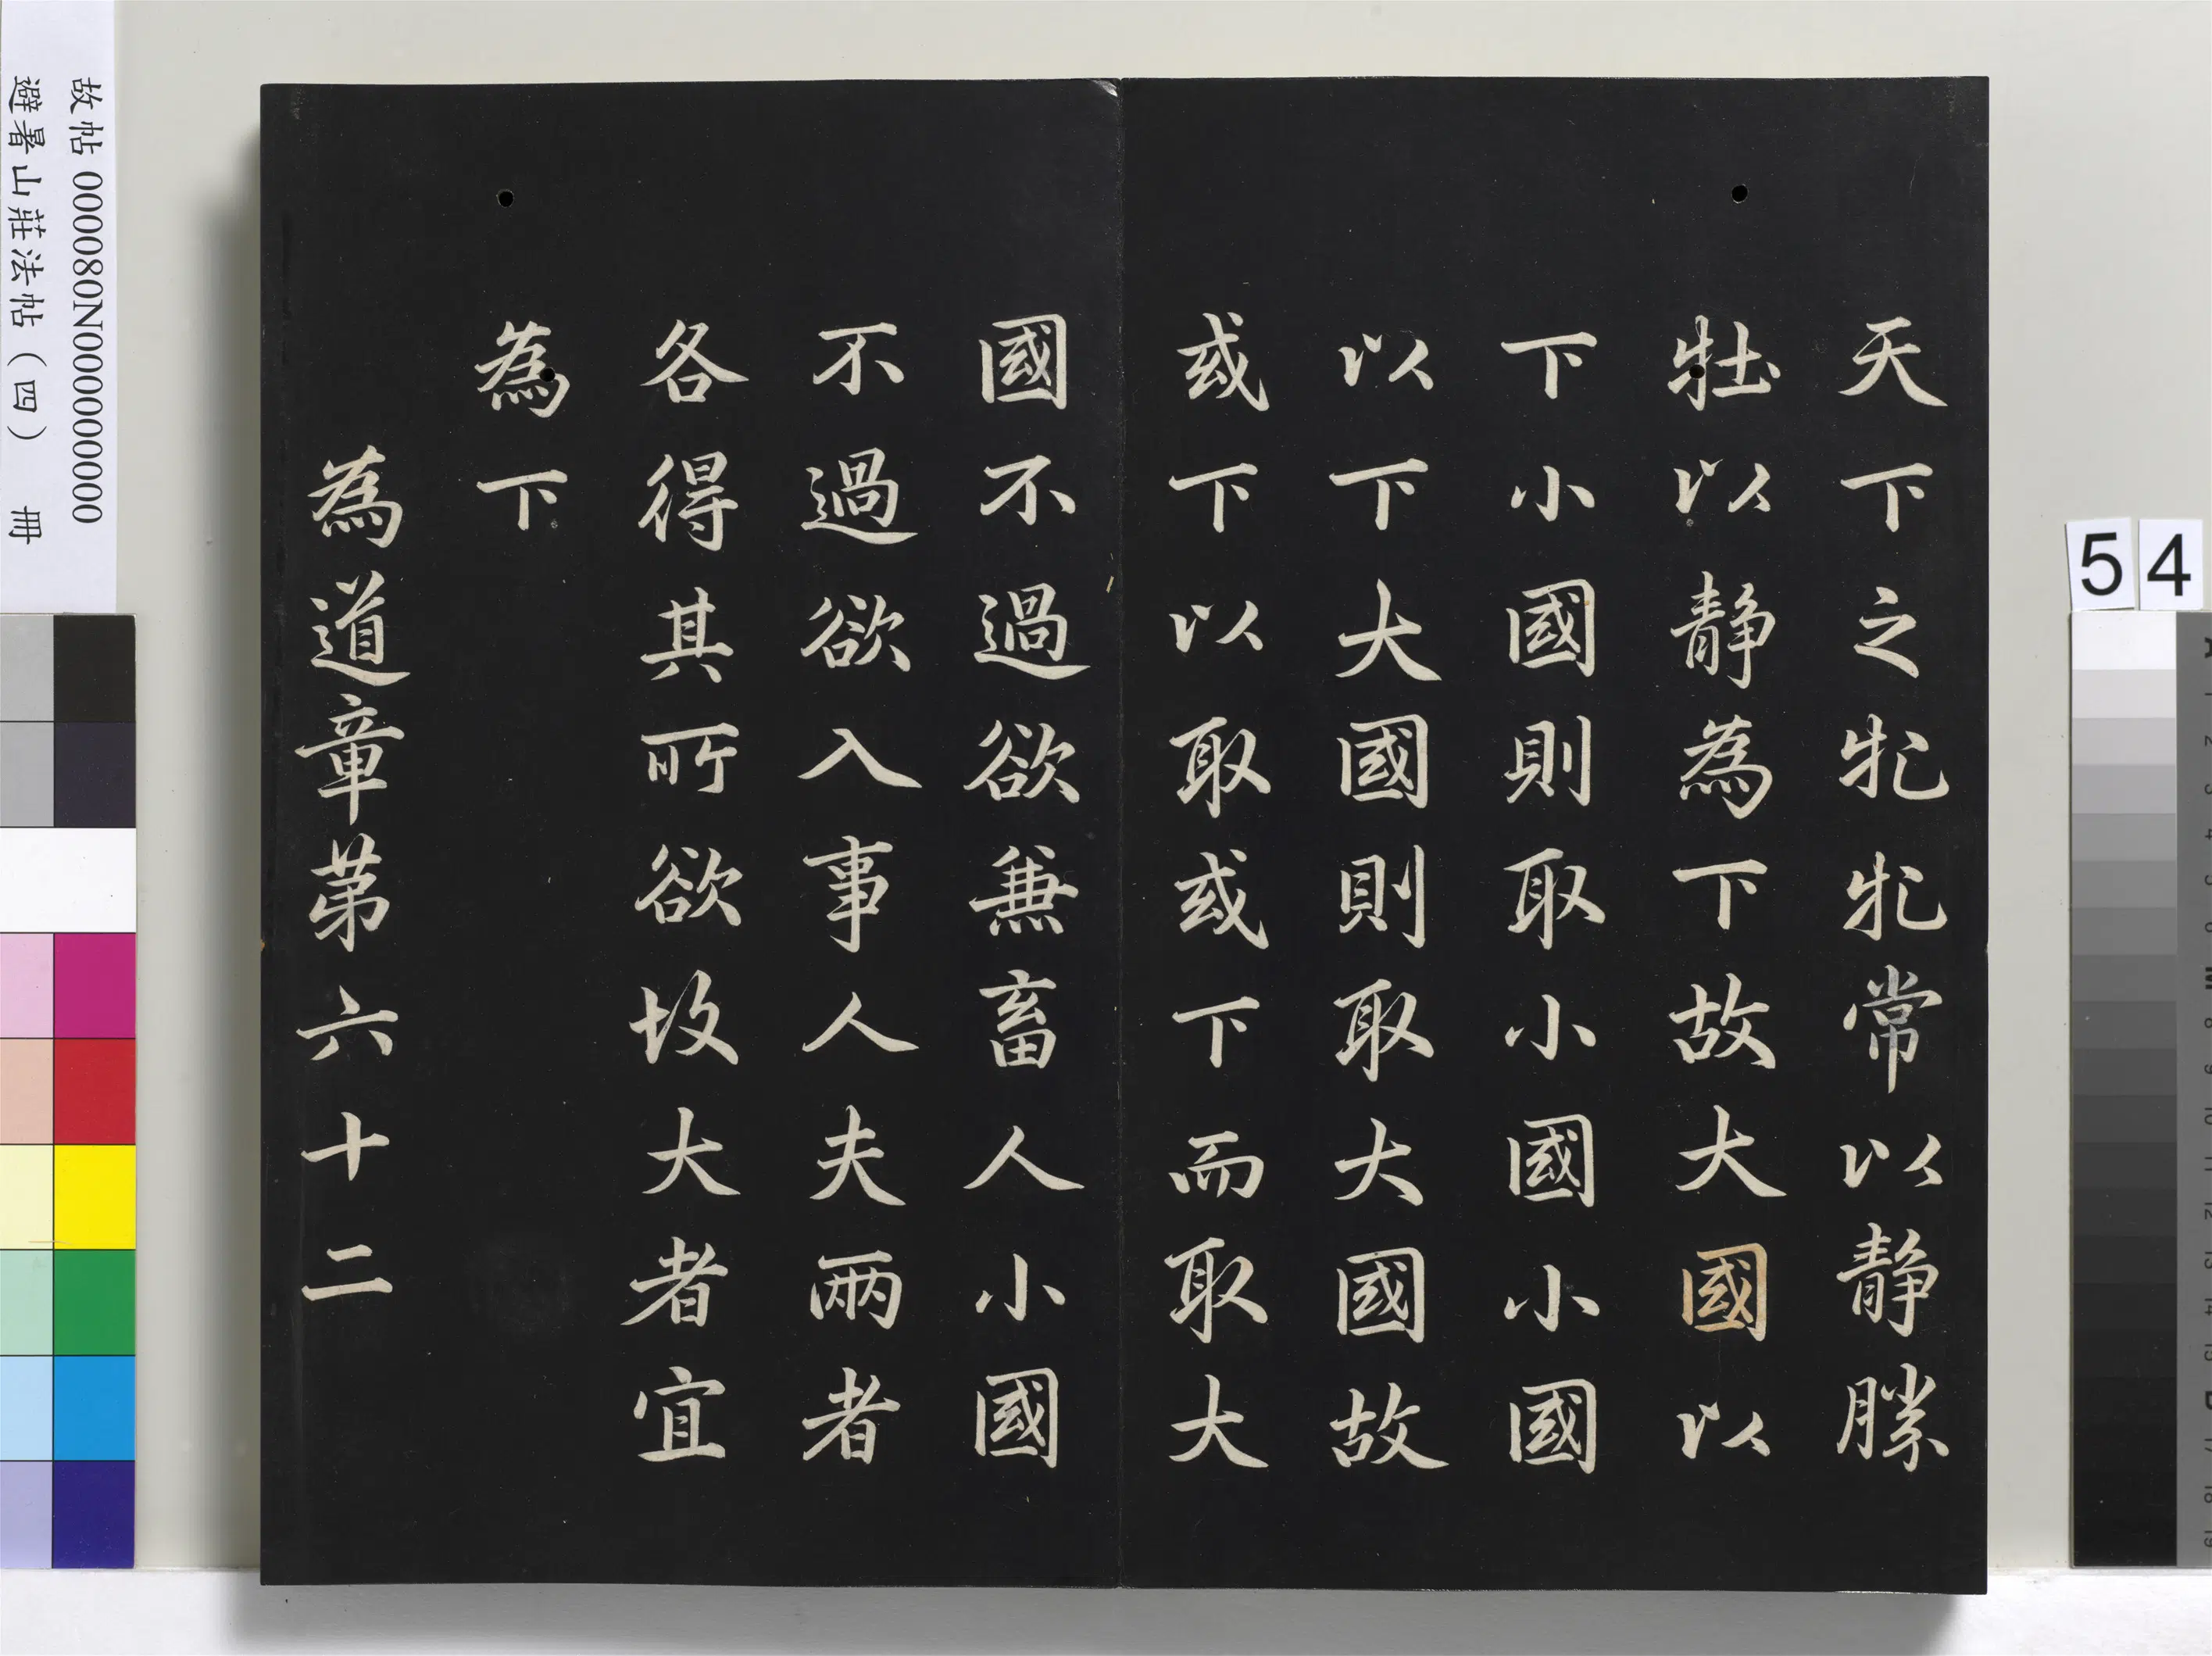 天下之牝牝常以靜勝
牡以靜為下故大國以
下小國則取小國小國
以下大國則取大國故
或下以取或下而取大
國不過欲兼畜人小國
不過欲入事人夫兩者
各得其所欲故大者宜
為下
為道章第六十二
故帖 000080N000000000
避暑山莊法帖（四） 冊
54